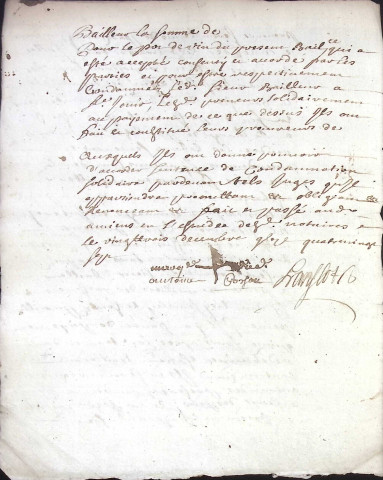 Bailleur la somme de
Pour le pot de vin du present Bail ce qui a
esté accepté consenty et accordé par les
parties et pour estre respectivement
Condamnez led. sieur Bailleur a
 jouir, lesd. preneurs solidairement
au paiement de ce que dessus Ils ont
fait et constitué leurs procureurs
Ausquels Ils ont donné pouvoir
d'accorder sentence de Condamnation
solidaire pardevant tels Juges qu'il
appartiendra promettans obligeans
Renonceant fait et passé aud.
amiens en l'estude desd. notaires
le vingt trois decembre quatre vingt
sept
marcq de
antoine